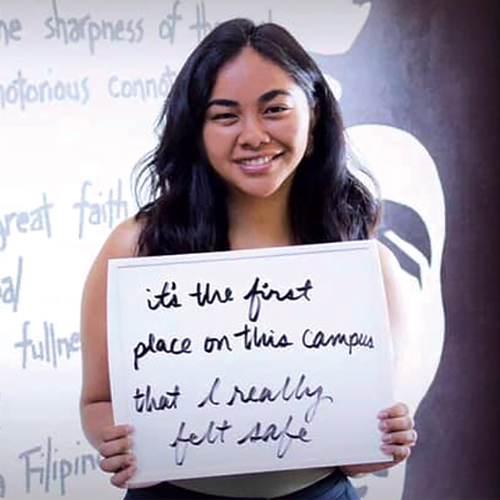 he sharpness of the
notorious connot
great faith
al
fullne
Filipin
it's the first
place on this campus
that I really
felt safe